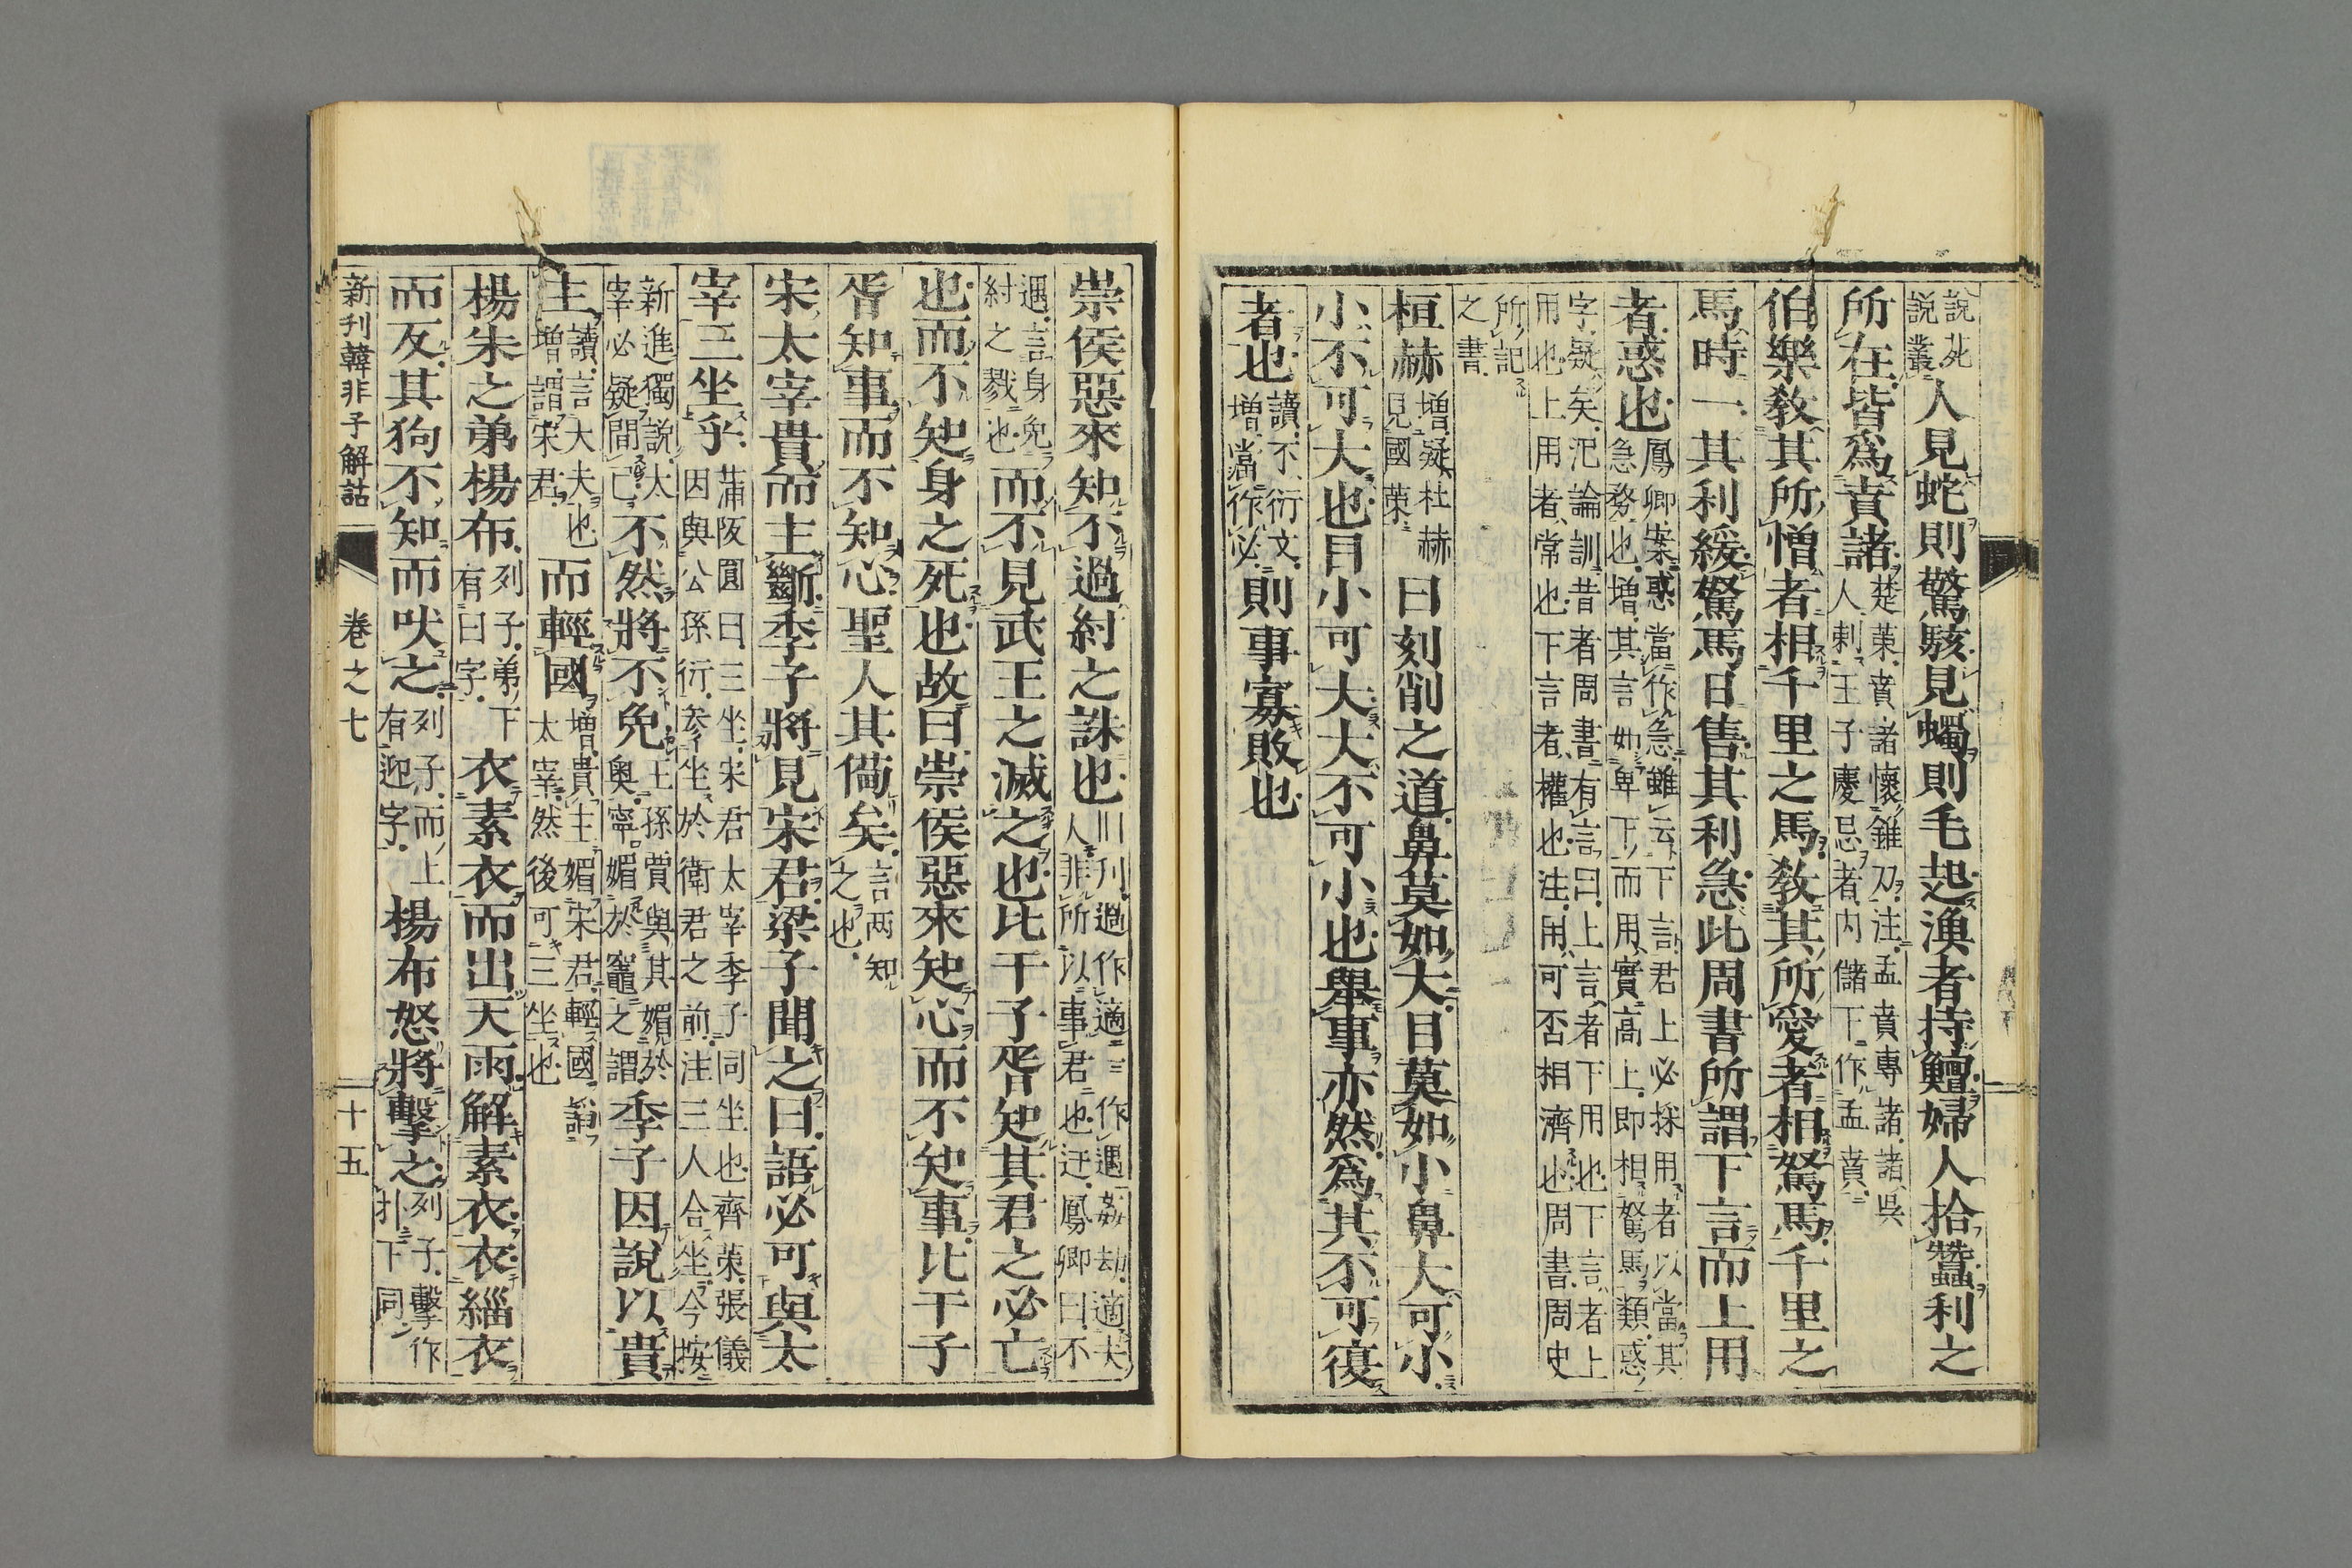 說苑
說叢
人見蛇則驚駭見蠋則毛起漁者持鱣婦人拾蠶利之
所在皆爲賁諸
楚策賁諸懷錐刀注孟賁專諸諸吳
人刺王子慶忌者內儲下作孟賁
伯樂敎其所憎者相千里之馬敎其所愛者相駑馬千里之
馬時一其利緩駑馬日售其利急此周書所謂下言而上用
者惑也
鳳卿案惑當作急雖云下言君上必採用者以當其
急務也增其言如卑下而用實高上即相駑馬類惑
字疑矣氾論訓昔者周書有言曰上言者下用也下言者上
用也上用者常也下言者權也注用可否相濟也周書周史
所記
之書
桓赫
增疑杜赫
見國策
曰刻削之道鼻莫如大目莫如小鼻大可小
小不可大也目小可大大不可小也舉事亦然爲其不可復
者也
讀不衍文
增當作必
則事寡敗也
崇侯惡來知不過紂之誅也
川刋過作適一作遇姦劫適夫
人非所以事君也迂鳳卿曰不
遇言身免
紂之戮也
而不見武王之滅之也比干子胥知其君之必亡
也而不知身之死也故曰崇侯惡來知心而不知事比干子
胥知事而不知心聖人其備矣
言兩知
之也
宋太宰貴而主斷季子將見宋君梁子聞之曰語必可與太
宰三坐乎
蒲阪圓曰三坐宋君太宰季子同坐也齊策張儀
因與公孫衍參坐於衛君之前注三人合坐今按
新進獨說太
宰必疑間己
不然將不免
王孫賈與其媚於
奧寧媚於竈之謂
季子因說以貴
主
讀言大夫也
增謂宋君
而輕國
增貴主媚宋君輕國謟
太宰然後可三坐也
楊朱之弟楊布
列子弟下
有曰字
衣素衣而出天雨解素衣衣緇衣
而反其狗不知而吠之
列子而上
有迎字
楊布怒將擊之
列子擊作
扑下同
新刊韓非子解詁
卷之七
十五